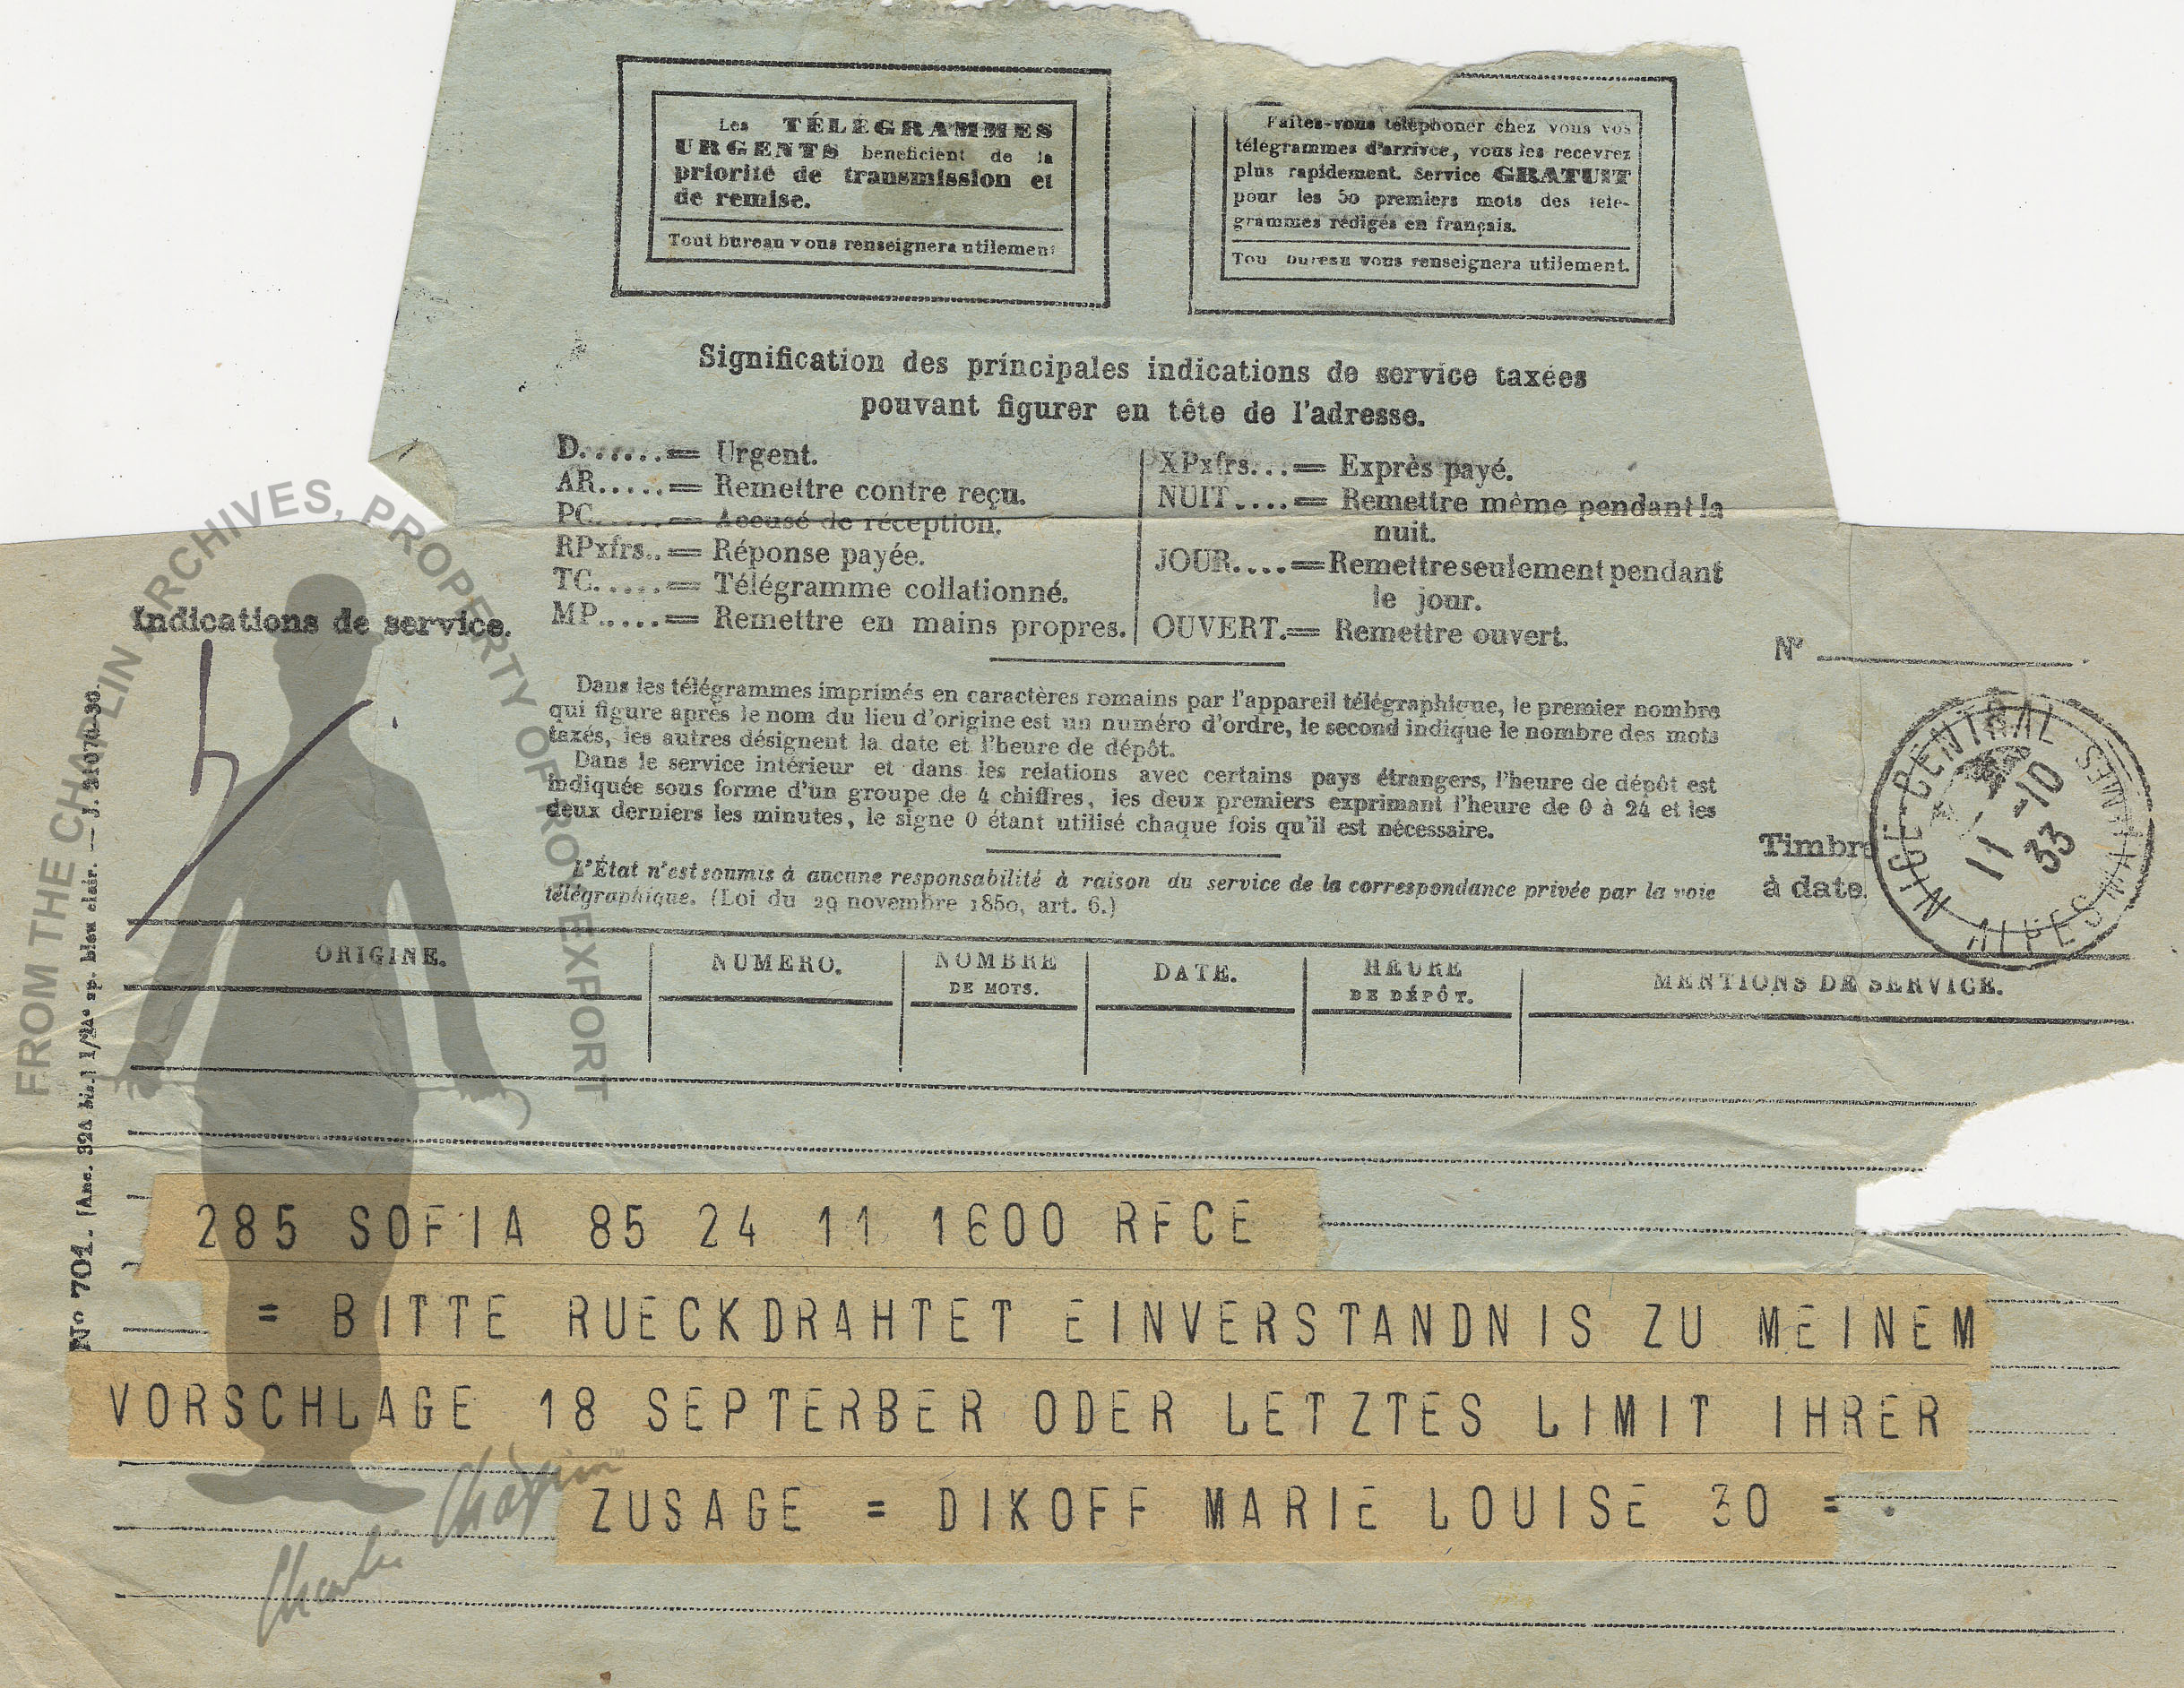 Les TÉLÉGRAMMES
URGENTS beneficient de la
priorité de transmission et
de remise.
Tout bureau vous renseignera utilement
Faites-vous téléphoner chez vous vos
télégrammes d'arrivée, vous les recevrez
plus rapidement. Service GRATUIT
pour les 50 premiers mots des télé-
grammes rédigés en français.
Tou bureau vous renseignera utilement.
Signification des principales indications de service taxées
pouvant figurer en tête de l'adresse.
D......= Urgent.
AR.....= Remettre contre reçu.
PC.....= Accusé de réception.
RPxfrs..= Réponse payée.
TC.....= Télégramme collationné.
MP.....= Remettre en mains propres.
XPxfrs...= Exprès payé.
NUIT....= Remettre même pendant la
nuit.
JOUR....= Remettre seulement pendant
le jour.
OUVERT.= Remettre ouvert.
Indications de service.
N°
Dans les télégrammes imprimés en caractères romains par l'appareil télégraphique, le premier nombre
qui figure après le nom du lieu d'origine est un numéro d'ordre, le second indique le nombre des mots
taxés, les autres désignent la date et l'heure de dépôt.
Dans le service intérieur et dans les relations avec certains pays étrangers, l'heure de dépôt est
indiquée sous forme d'un groupe de 4 chiffres, les deux premiers exprimant l'heure de 0 à 24 et les
deux derniers les minutes, le signe 0 étant utilisé chaque fois qu'il est nécessaire.
L'État n'est soumis à aucune responsabilité à raison du service de la correspondance privée par la voie
télégraphique. (Loi du 29 novembre 1850, art. 6.)
Timbre
à date.
NICE CENTRAL
11-10
33
ALPES MARITIMES
ORIGINE.
NUMERO.
NOMBRE
DE MOTS.
DATE.
HEURE
DE DÉPÔT.
MENTIONS DE SERVICE.
N° 701. (Anc. 324 bis.) 1/24 sp. bleu clair. — J. 31070-30.
285 SOFIA 85 24 11 1600 RFCE
= BITTE RUECKDRAHTET EINVERSTANDNIS ZU MEINEM
VORSCHLAGE 18 SEPTERBER ODER LETZTES LIMIT IHRER
ZUSAGE = DIKOFF MARIE LOUISE 30 =
FROM THE CHAPLIN ARCHIVES, PROPERTY OF ROY EXPORT
Charlie Chaplin™